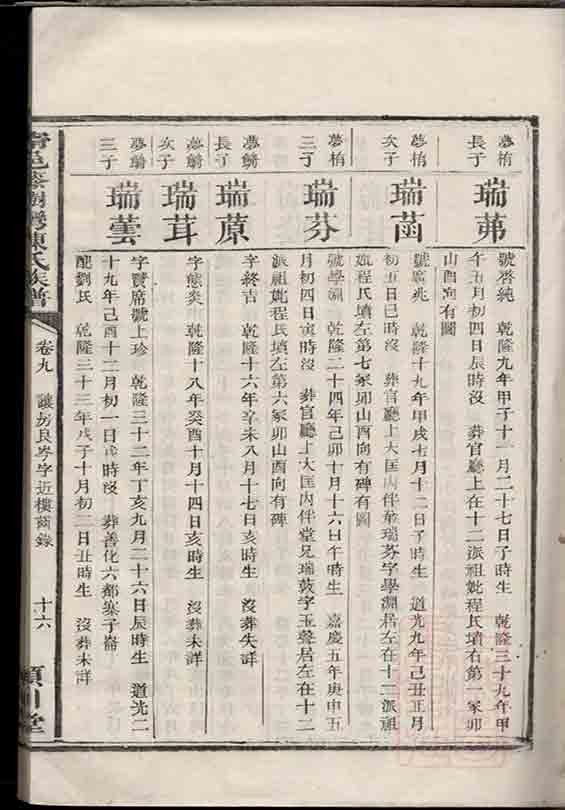 夢栯長子
瑞茀
號啓純 乾隆九年甲子十一月二十七日子時生 乾隆三十九年甲
午五月初四日辰時沒 葬官廳上在十二派祖妣程氏墳右第一冢卯
山酉向有圖
夢栯次子
瑞菌
號廣兆 乾隆十九年甲戌七月十二日子時生 道光九年己丑正月
初五日巳時沒 葬官廳上大匡內伴弟瑞芬字學淵居左在十二派祖
妣程氏墳左第七冢卯山酉向有碑有圖
夢栯三子
瑞芬
號學淵 乾隆二十四年己卯十月十六日午時生 嘉慶五年庚申五
月初四日寅時沒 葬官廳上大匡內伴堂兄瑞鼓字玉聲居左在十二
派祖妣程氏墳左第六冢卯山酉向有碑
夢鯖長子
瑞原
字終吉 乾隆十六年辛未八月十七日亥時生 沒葬失詳
夢鯖次子
瑞茸
字態炎 乾隆十八年癸酉十月十四日亥時生 沒葬未詳
夢鯖三子
瑞蕓
字贒席號上珍 乾隆三十二年丁亥九月二十六日辰時生 道光二
十九年己酉十二月初一日戌時沒 葬善化六都寨子崙
配劉氏 乾隆三十三年戊子十月初二日丑時生 沒葬未詳
陳氏族譜
卷九
讓房良岑字近樓齒錄
十六
川堂